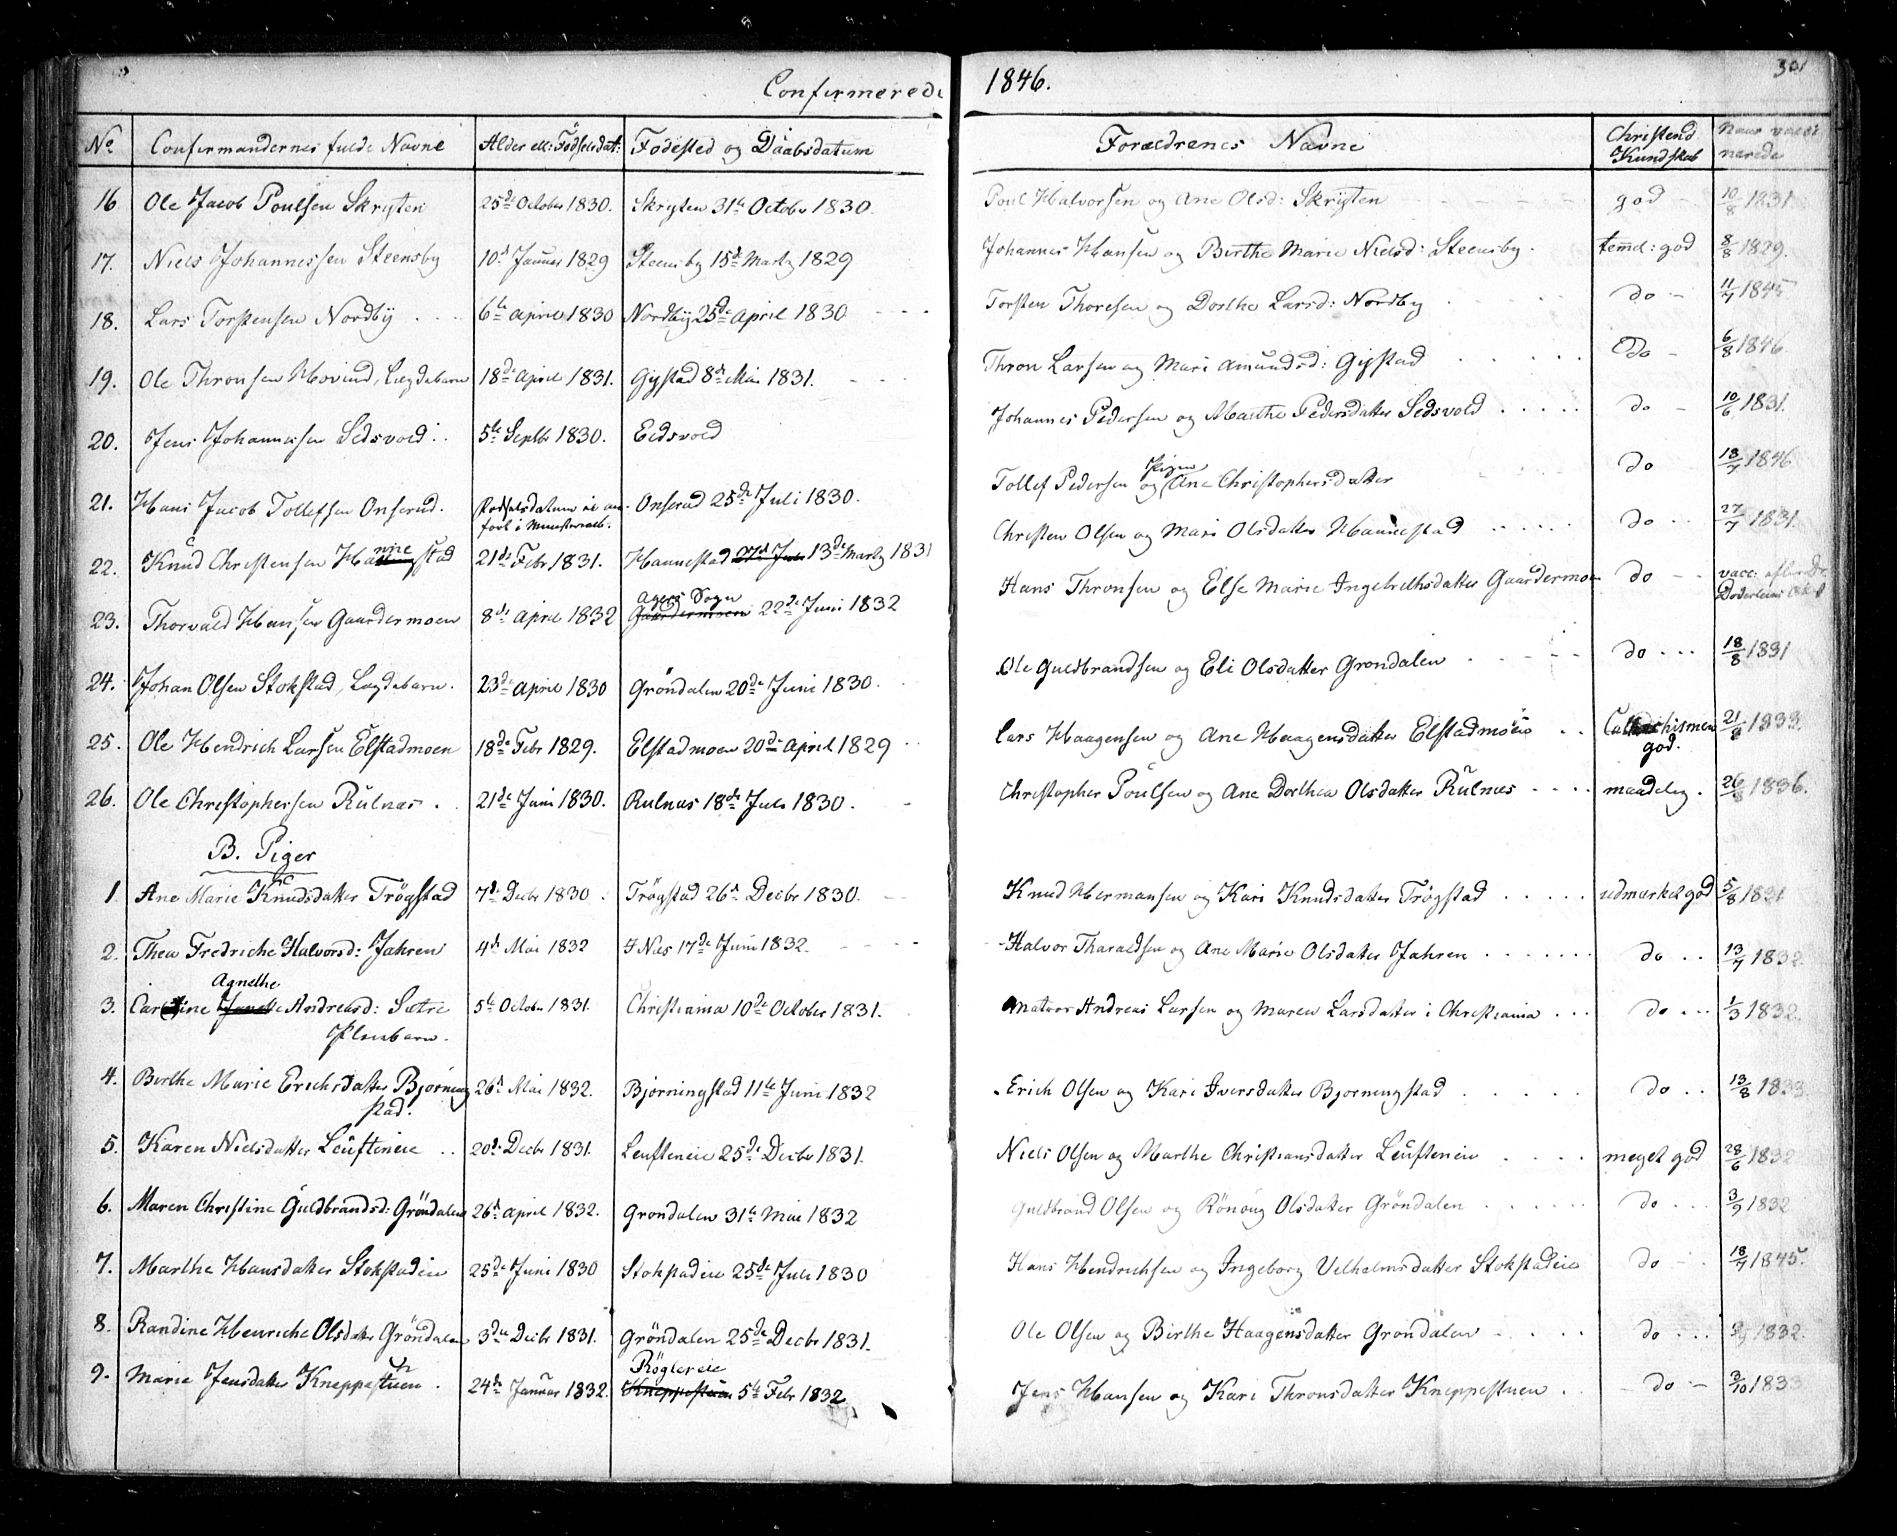 Confirmerede 1846.
301
No Confirmandernes fulde Navne Alder ell: Fødselsdat: Fødested og Daabsdatum Forældrenes Navne Christend Kundskab Naar vacci nerede
16 Ole Jacob Poulsen Skrysten 25de October 1830. Skrysten 31te Octobr 1830. Poul Halvorsen og Ane Olsd: Skrysten god 10/8 1831
17. Niels Johannessen Steensby 10d Januar 1829 Steensby 15de Marts 1829 Johannes Hansen og Birthe Marie Nielsd: Steensby. temel: god 8/8 1829.
18. Lars Torstensen Nordby 6te April 1830 Nordby 25de April 1830 Torsten Thoresen og Dorthe Larsd: Nordby do 11/7 1845
19. Ole Thronsen Hovind, Lægdebarn 18de April 1831. Gystad 8de Mai 1831. Thron Larsen og Mari Amundsd: Gystad do 6/8 1846
20. Jens Johannessen Sedsvold 5te Septbr 1830. Eidsvold Johannes Pedersen og Marthe Pedersdatter Sedsvold do 10/6 1831.
21. Hans Jacob Tollefsen Onserud. Fødselsdatum ei anført i Ministerialb. Onserud 25de Juli 1830. Tollef Pedersen og Pigen Ane Christophersdatter do 18/7 1846
22. Knud Christensen Hannestad 21de Febr 1831. Hannestad 13de Marts 1831 Christen Olsen og Mari Olsdatter Hannestad do 27/7 1831.
23. Thorvald Hansen Gaardermoen 8de April 1832 Agers Sogn Gaardermoen 22de Juni 1832 Hans Thronsen og Else Marie Ingebrethsdatter Gaardermoen do vacc: aflærde Døderleins Attest
24. Johan Olsen Stokstad, Lægdebarn. 23de April 1830 Grøndalen 20de Juni 1830. Ole Guldbrandsen og Eli Olsdatter Grondalen do 18/8 1831
25. Ole Hendrich Larsen Elstadmoen 18de Febr 1829. Elstadmoen 20de April 1829 Lars Haagensen og Ane Haagensdatter Elstadmoen Cathechismen god. 21/8 1833.
26. Ole Christophersen Rulnæs 21de Juni 1830. Rulnæs 18de Juli 1830. Christopher Poulsen og Ane Dorthea Olsdatter Rulnæs maadelig. 26/8 1836.
B. Piger
1 Ane Marie Knudsdatter Trøgstad 7de Decbr 1830 Trøgstad 26de Decbr 1830. Knud Hermansen og Kari Knudsdatter Trøgstad udmærket god 5/8 1831
2. Thea Fredriche Halvorsd: Jahren 4de Mai 1832 I Næs 17de Juni 1832. Halvor Tharaldsen og Ane Marie Olsdatter Jahren do 13/7 1832
3. Caroline Agnethe Andreasd: Sætre Pleiebarn. 5te Octobr 1831. Christiania 10de October 1831. Matros Andreas Larsen og Maren Larsdatter i Christiania do 1/3 1832.
4. Birthe Marie Erichsdatter Bjørning stad. 26de Mai 1832. Bjørningstad 11te Juni 1832 Erich Olsen og Kari Iversdatter Bjørningstad do 13/8 1833
5. Karen Nielsdatter Leufteneie 20de Decbr 1831. Leufteneie 25de Decbr 1831. Niels Olsen og Marthe Christiansdatter Leufteneie meget god 28/6 1832
6. Maren Christine Guldbrandsd: Grøndalen 26de April 1832. Grondalen 31te Mai 1832 Guldbrand Olsen og Rønoug Olsdatter Grøndalen do 3/9 1832
7. Marthe Hansdatter Stokstadeie 25de Juni 1830 Stokstadeie 25de Juli 1830 Hans Hendrichsen og Ingeborg Velhelmsdatter Stokstadeie do 18/7 1845.
8. Randine Henriche Olsdatter Grøndalen 3die Decbr 1831. Grøndalen 25de Decbr 1831. Ole Olsen og Birthe Haagensdatter Grøndalen do 1832.
9. Marie Jensdatter Kneppestuen 24de Januar 1832. Røglereie Kneppestuen 5te Febr 1832 Jens Hansen og Kari Thronsdatter Kneppestuen do 3/10 1833